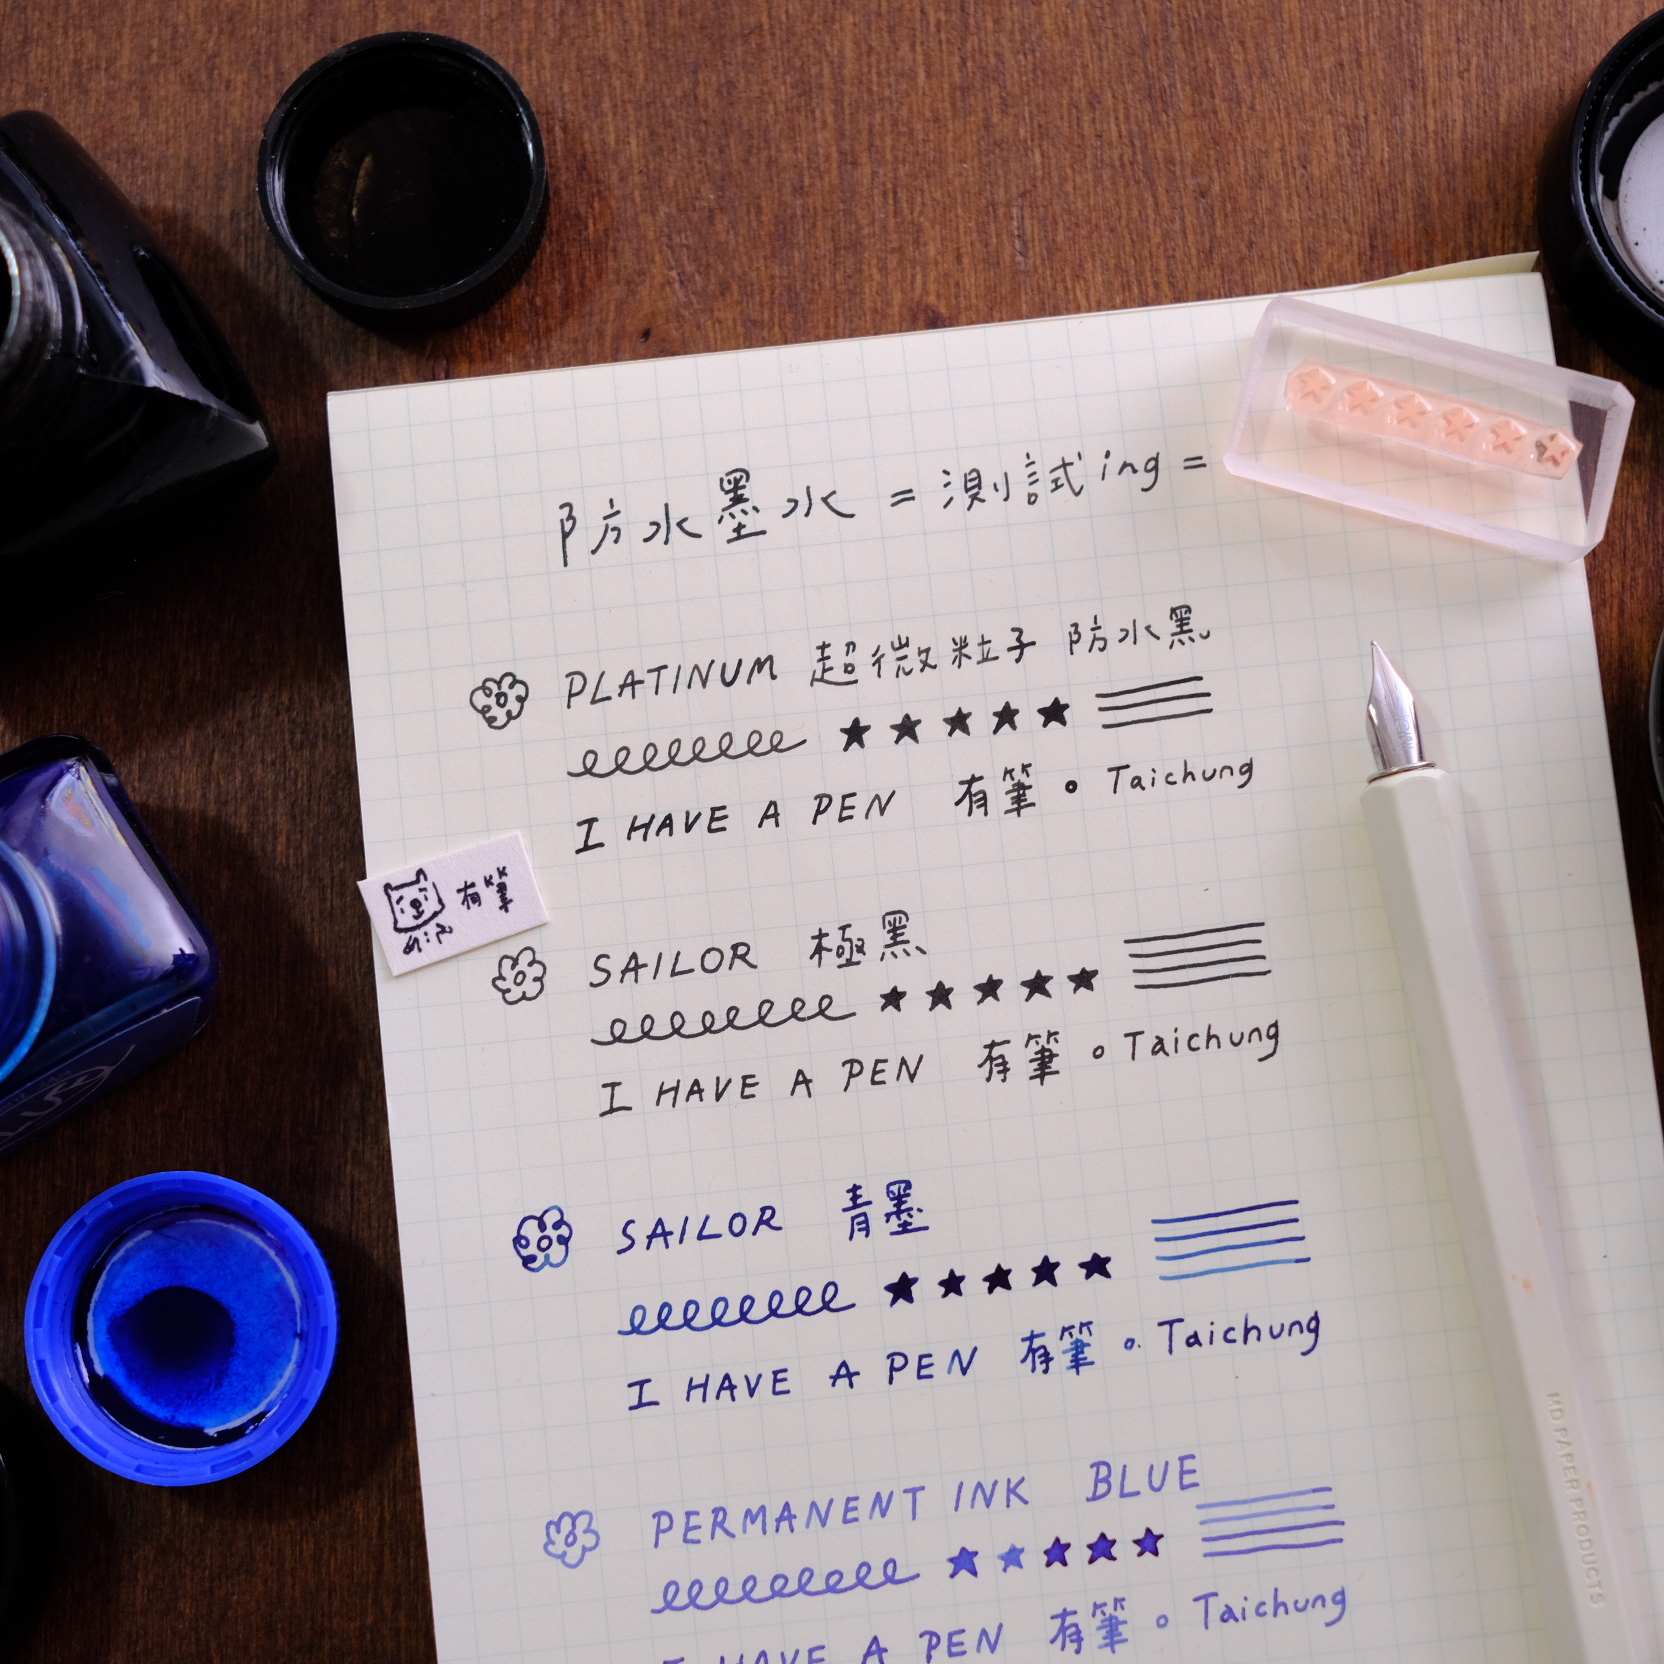 防水墨水 = 測試ing =
PLATINUM 超微粒子 防水黑
I HAVE A PEN 有筆。Taichung
有筆
SAILOR 極黑
I HAVE A PEN 有筆。Taichung
SAILOR 青墨
I HAVE A PEN 有筆。Taichung
PERMANENT INK BLUE
I HAVE A PEN 有筆。Taichung
MD PAPER PRODUCTS